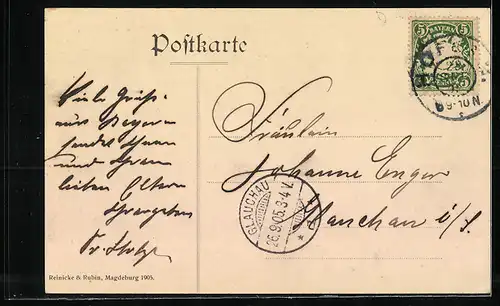 Postkarte
5 BAYERN 5
HOF
Viele Grüße
aus Bayern
sendet Ihnen
und Ihren
lieben Eltern
Fräulein
Johanne Enger
Glauchau i/S.
GLAUCHAU
26.9.05.3-4 V.
Reinicke & Rubin, Magdeburg 1905.